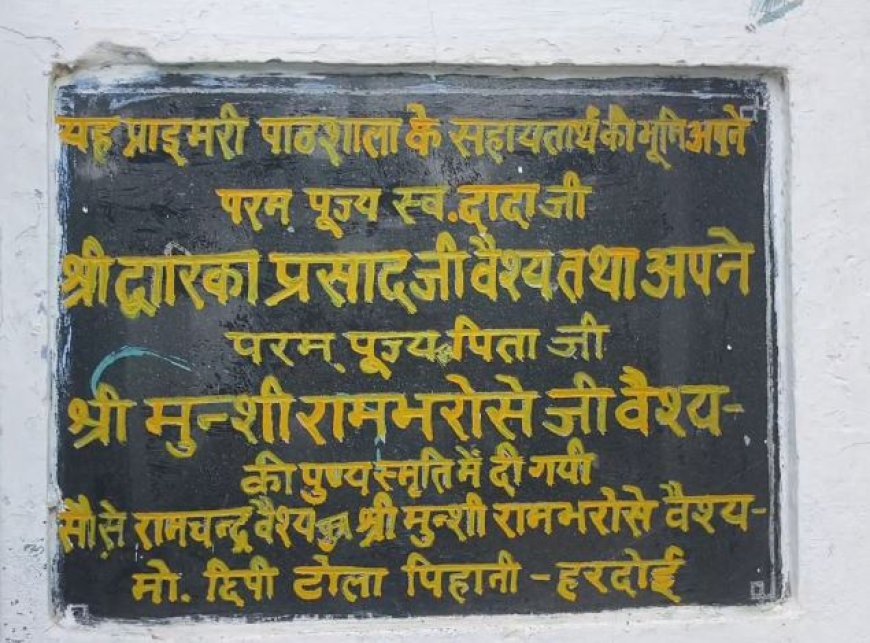 यह प्राइमरी पाठशाला के सहायतार्थ की भूमि अपने
परम पूज्य स्व. दादा जी
श्री द्वारिका प्रसाद जी वैश्य तथा अपने
परम पूज्य पिता जी
श्री मुन्शी रामभरोसे जी वैश्य-
की पुण्य स्मृति में दी गयी
सौ से रामचन्द्र वैश्य पुत्र श्री मुन्शी रामभरोसे वैश्य-
मो. दिपी टोला पिहानी - हरदोई